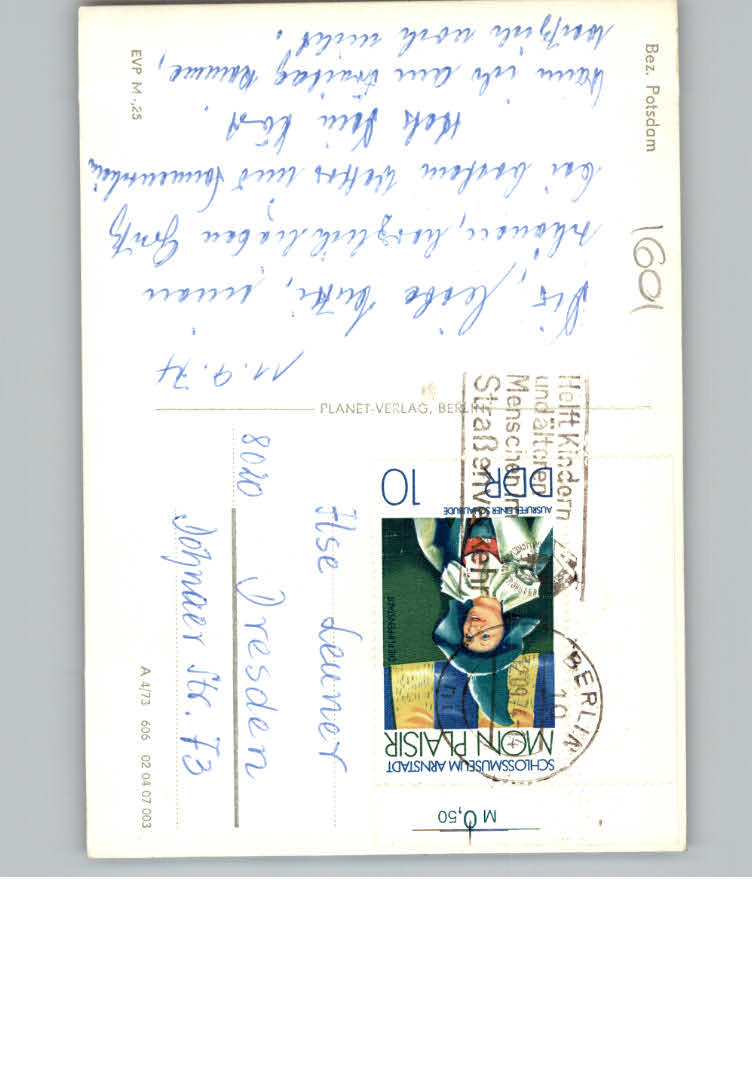 Bez. Potsdam
1601
11.9.74
Dir, liebe Mutti, einen
schönen, herzlich lieben Gruß
bei bestem Wetter und Sonnenschein
stets Dein
Wann ich am Freitag komme,
weiß ich noch nicht.
EVP M -,25
PLANET-VERLAG, BERLIN
Helft Kindern
und älteren
Menschen im
Straßenverkehr
BERLIN
10
SCHLOSSMUSEUM ARNSTADT
MON PLAISIR
AUSRUFER EINER SCHAUBUDE
DDR 10
M 0,50
Ilse Leuner
8020 Dresden
Dohnaer Str. 73
A 4/73 606 02 04 07 003